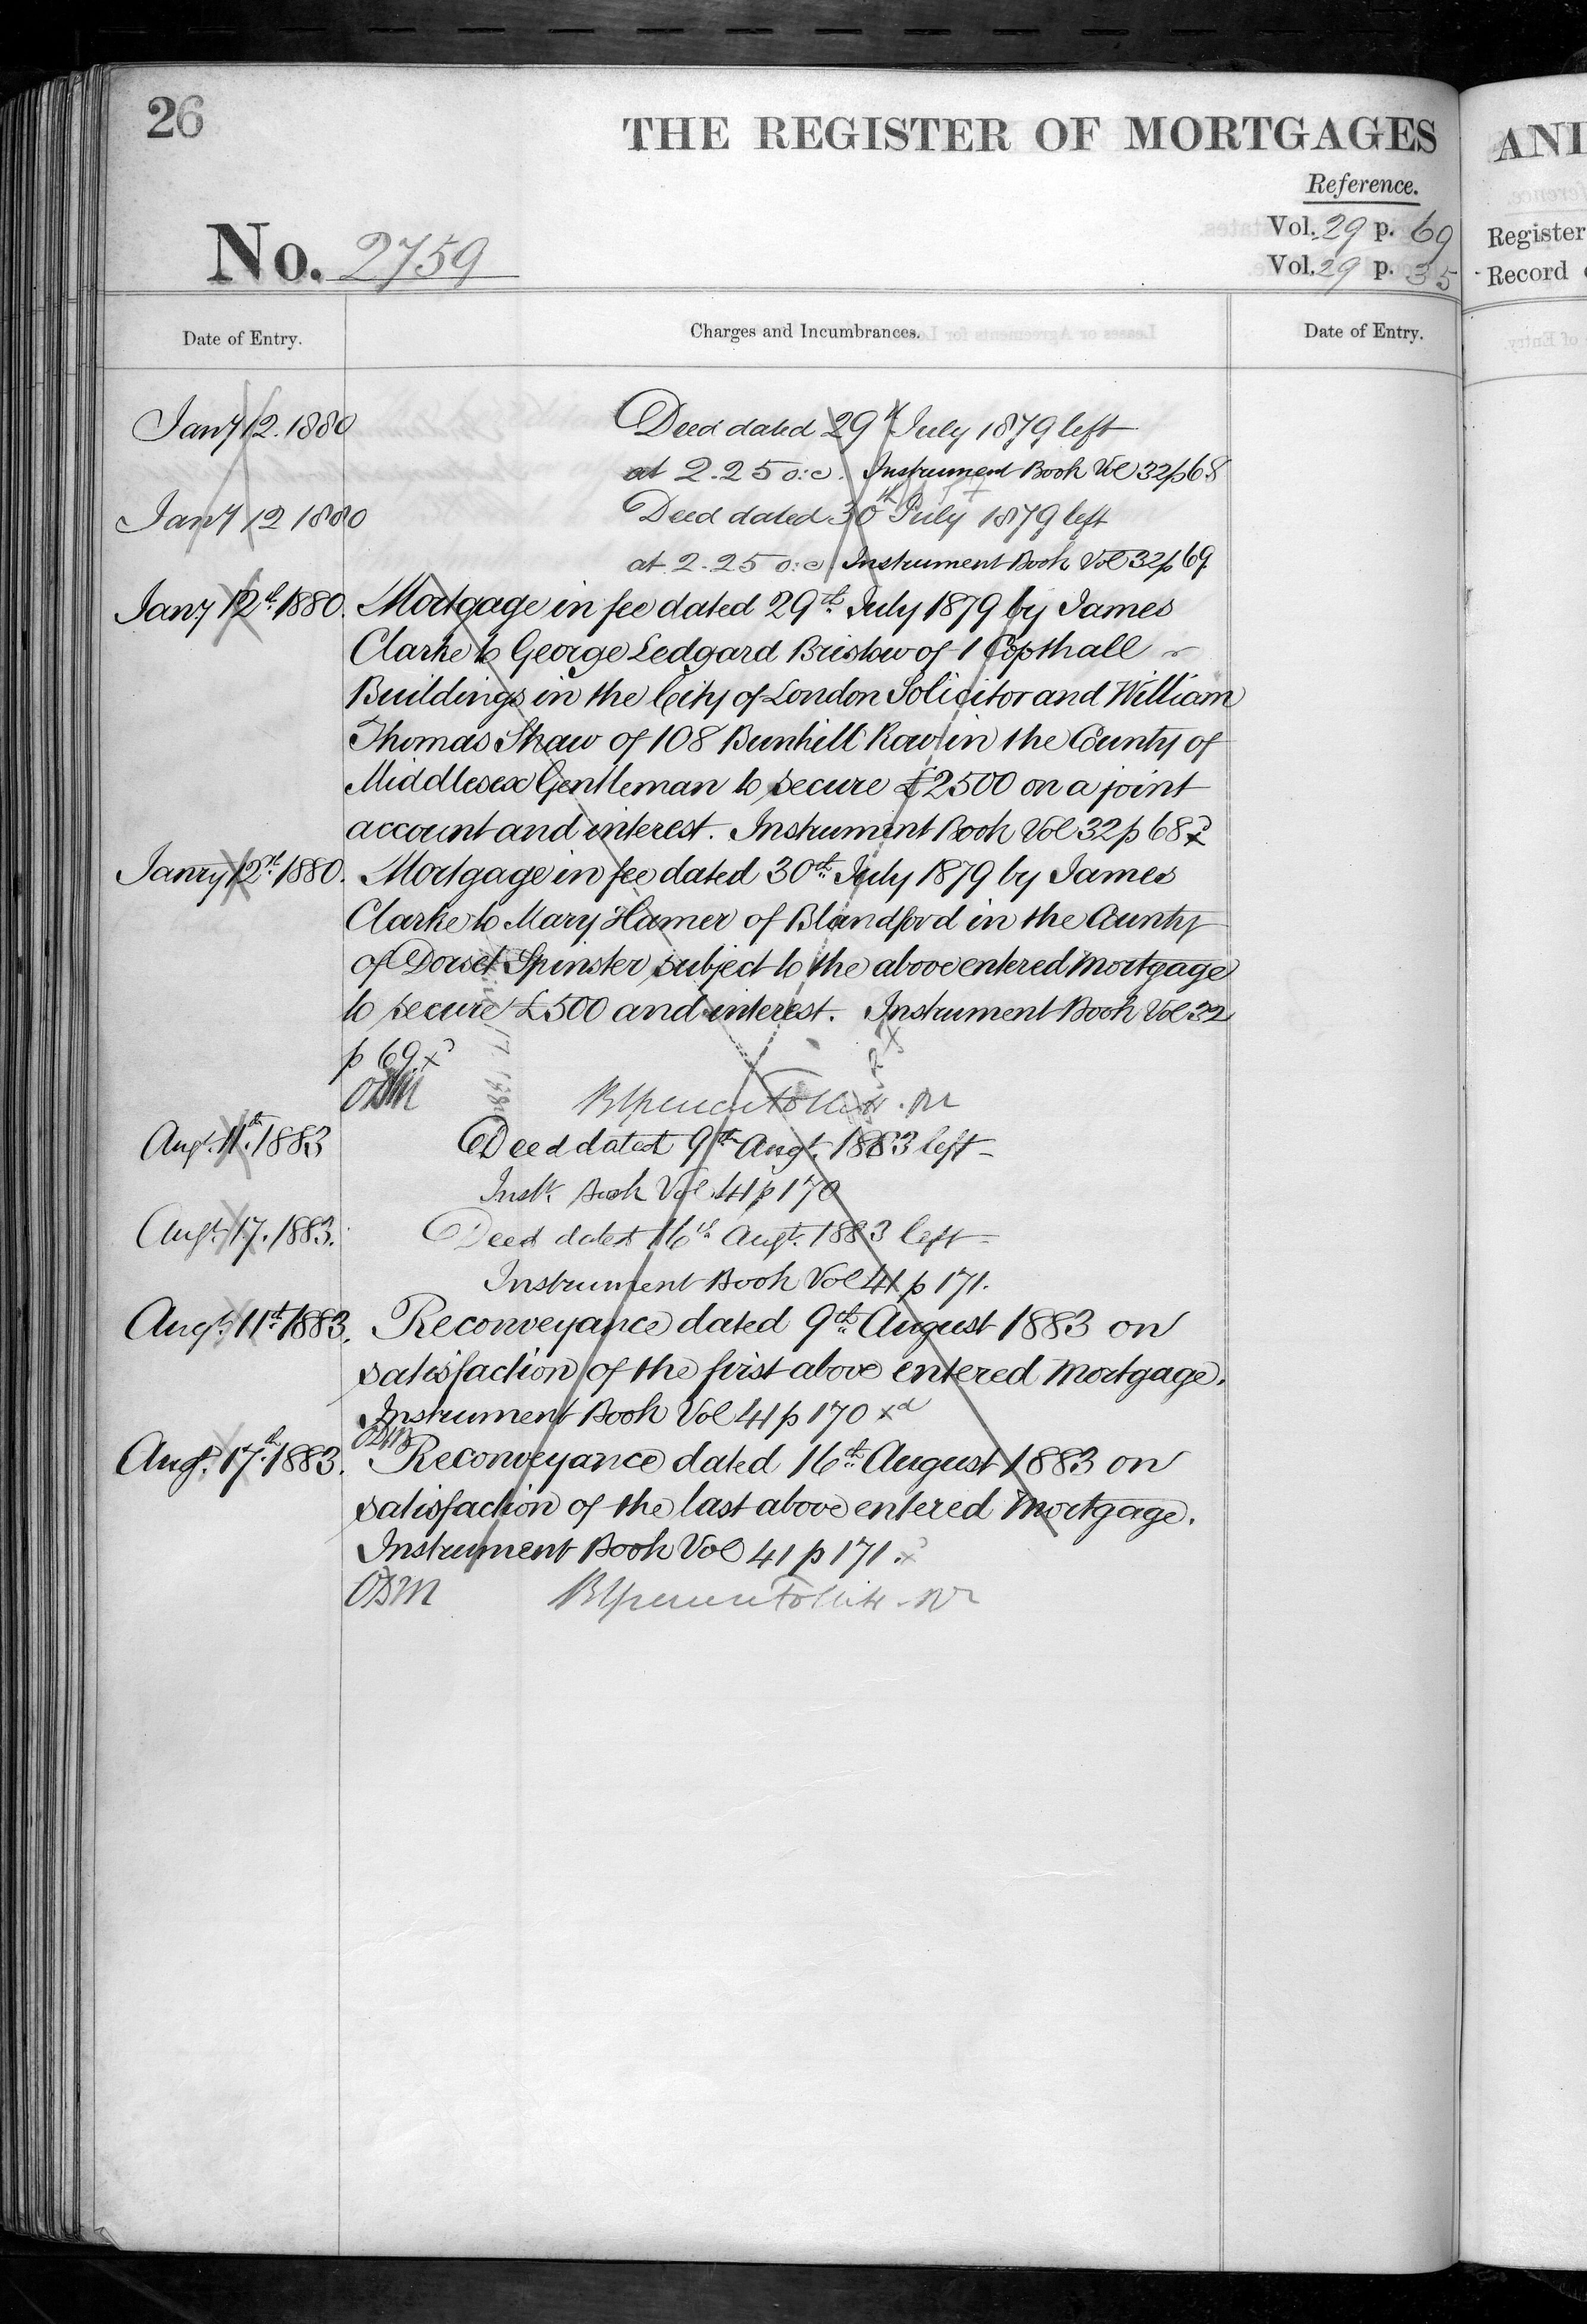 26
THE REGISTER OF MORTGAGES
Reference.
No. 2759
Vol. 29 p. 69
Vol. 29 p. 35
Date of Entry.
Charges and Incumbrances.
Date of Entry.
Jany 12. 1880
Deed dated 29th July 1879 left
at 2.25 o:c. Instrument Book Vol 32 p 68
Jany 12 1880
Deed dated 30th July 1879 left
at 2.25 o:c Instrument Book Vol 32 p 69
Jany 12th 1880. Mortgage in fee dated 29th July 1879 by James
Clarke to George Ledgard Bristow of 1 Copthall
Buildings in the City of London Solicitor and William
Thomas Shaw of 108 Bunhill Row in the County of
Middlesex Gentleman to secure £2500 on a joint
account and interest. Instrument Book Vol 32 p 68 xd
Janry 12th 1880. Mortgage in fee dated 30th July 1879 by James
Clarke to Mary Hamer of Blandford in the County
of Dorset Spinster subject to the above entered Mortgage
to secure £500 and interest. Instrument Book Vol 32
p 69. xd
ODM
Augt. 11th. 1883
Deed dated 9th Augt. 1883 left
Instt. Book Vol 41 p 170
Augt. 17. 1883.
Deed dated 16th Augt. 1883 left
Instrument Book Vol 41 p 171.
Augt. 11th 1883. Reconveyance dated 9th August 1883 on
satisfaction of the first above entered Mortgage.
Instrument Book Vol 41 p 170 xd
ODM
Augt. 17th. 1883. Reconveyance dated 16th August 1883 on
satisfaction of the last above entered Mortgage.
Instrument Book Vol 41 p 171. xd
ODM
AND
Register
Record